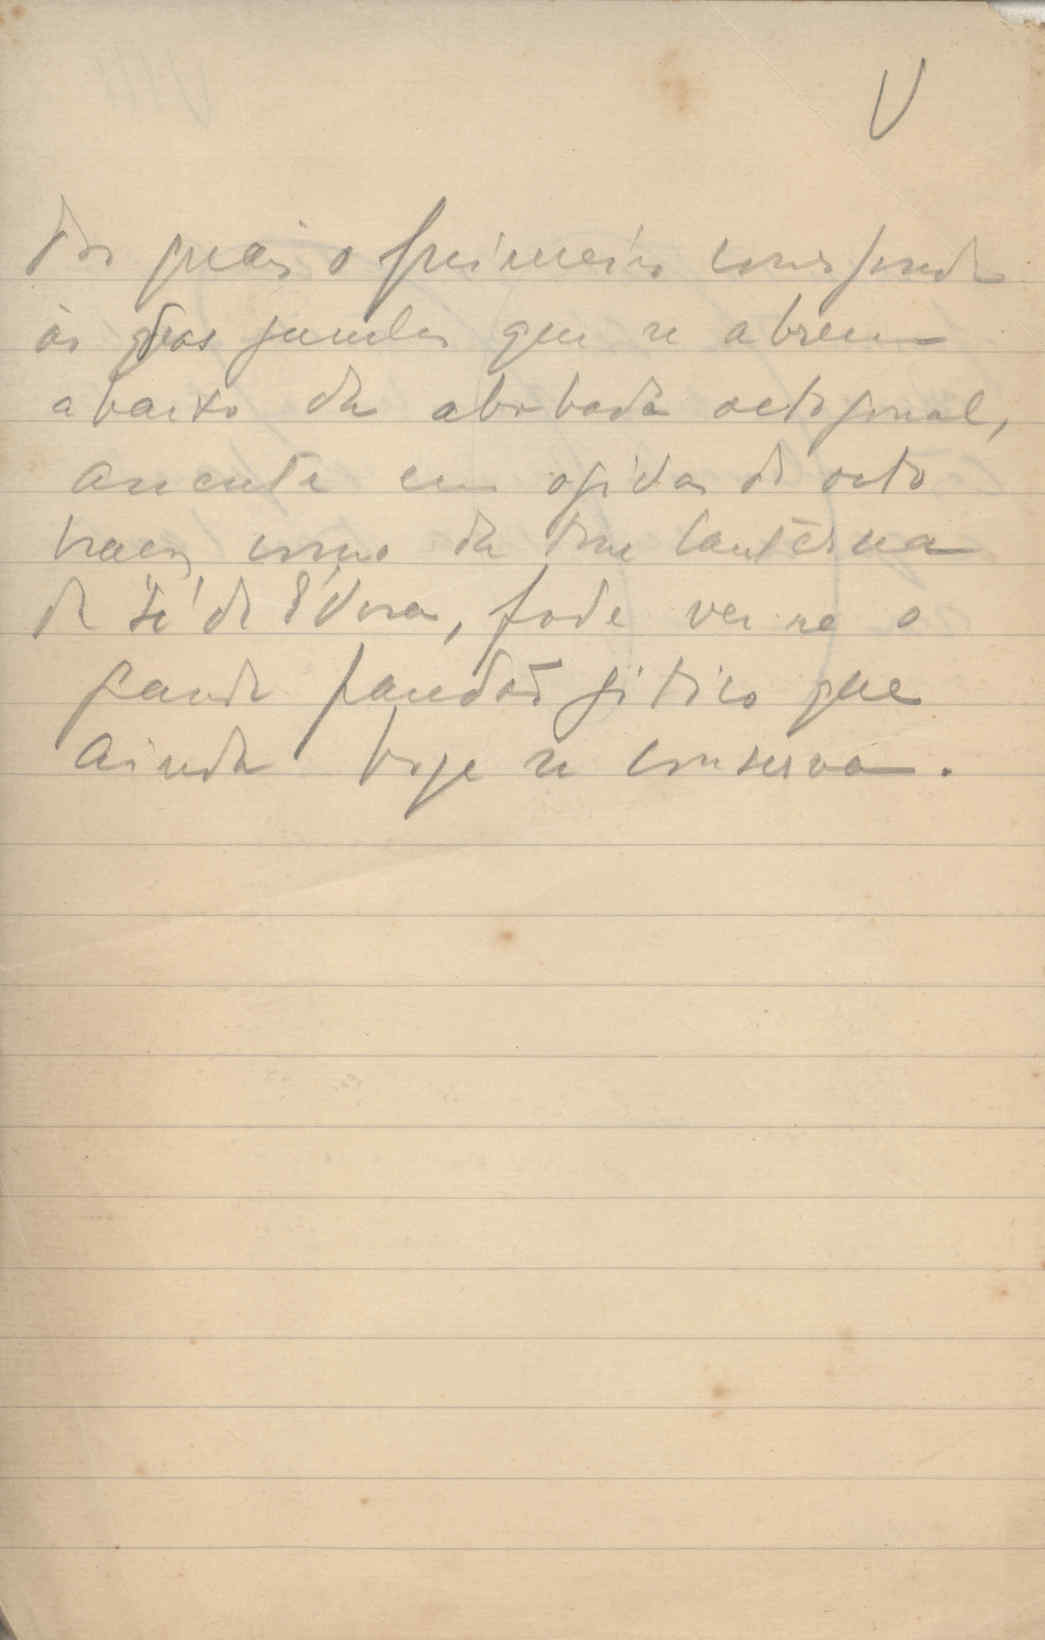 V
dos quais o primeiro corresponde
às duas janelas que se abrem
abaixo da abobada octogonal,
assente em ogivas de oito
como da torre lanterna
da Sé de Évora, pode ver-se o
grande gótico que
ainda hoje se conserva.